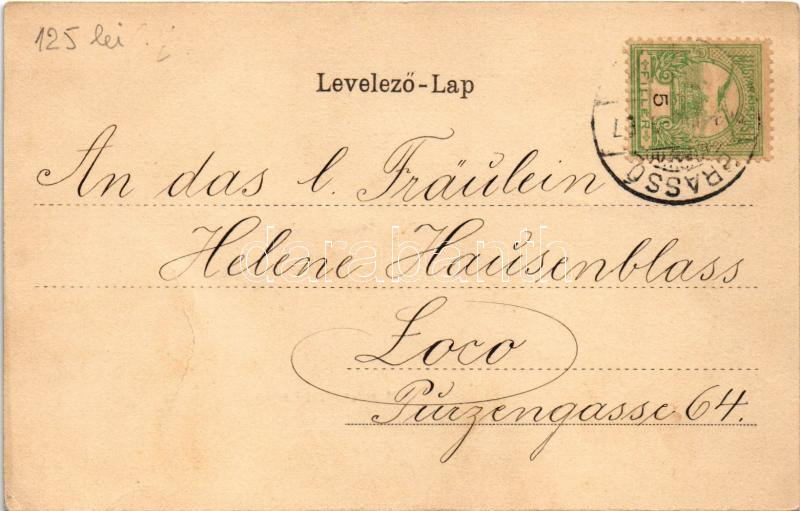 125 lei
Levelező-Lap
5
FILLÉR
BRASSÓ
An das l. Fräulein
Helene Hausenblass
darabanth
Loco
Purzengasse 64.